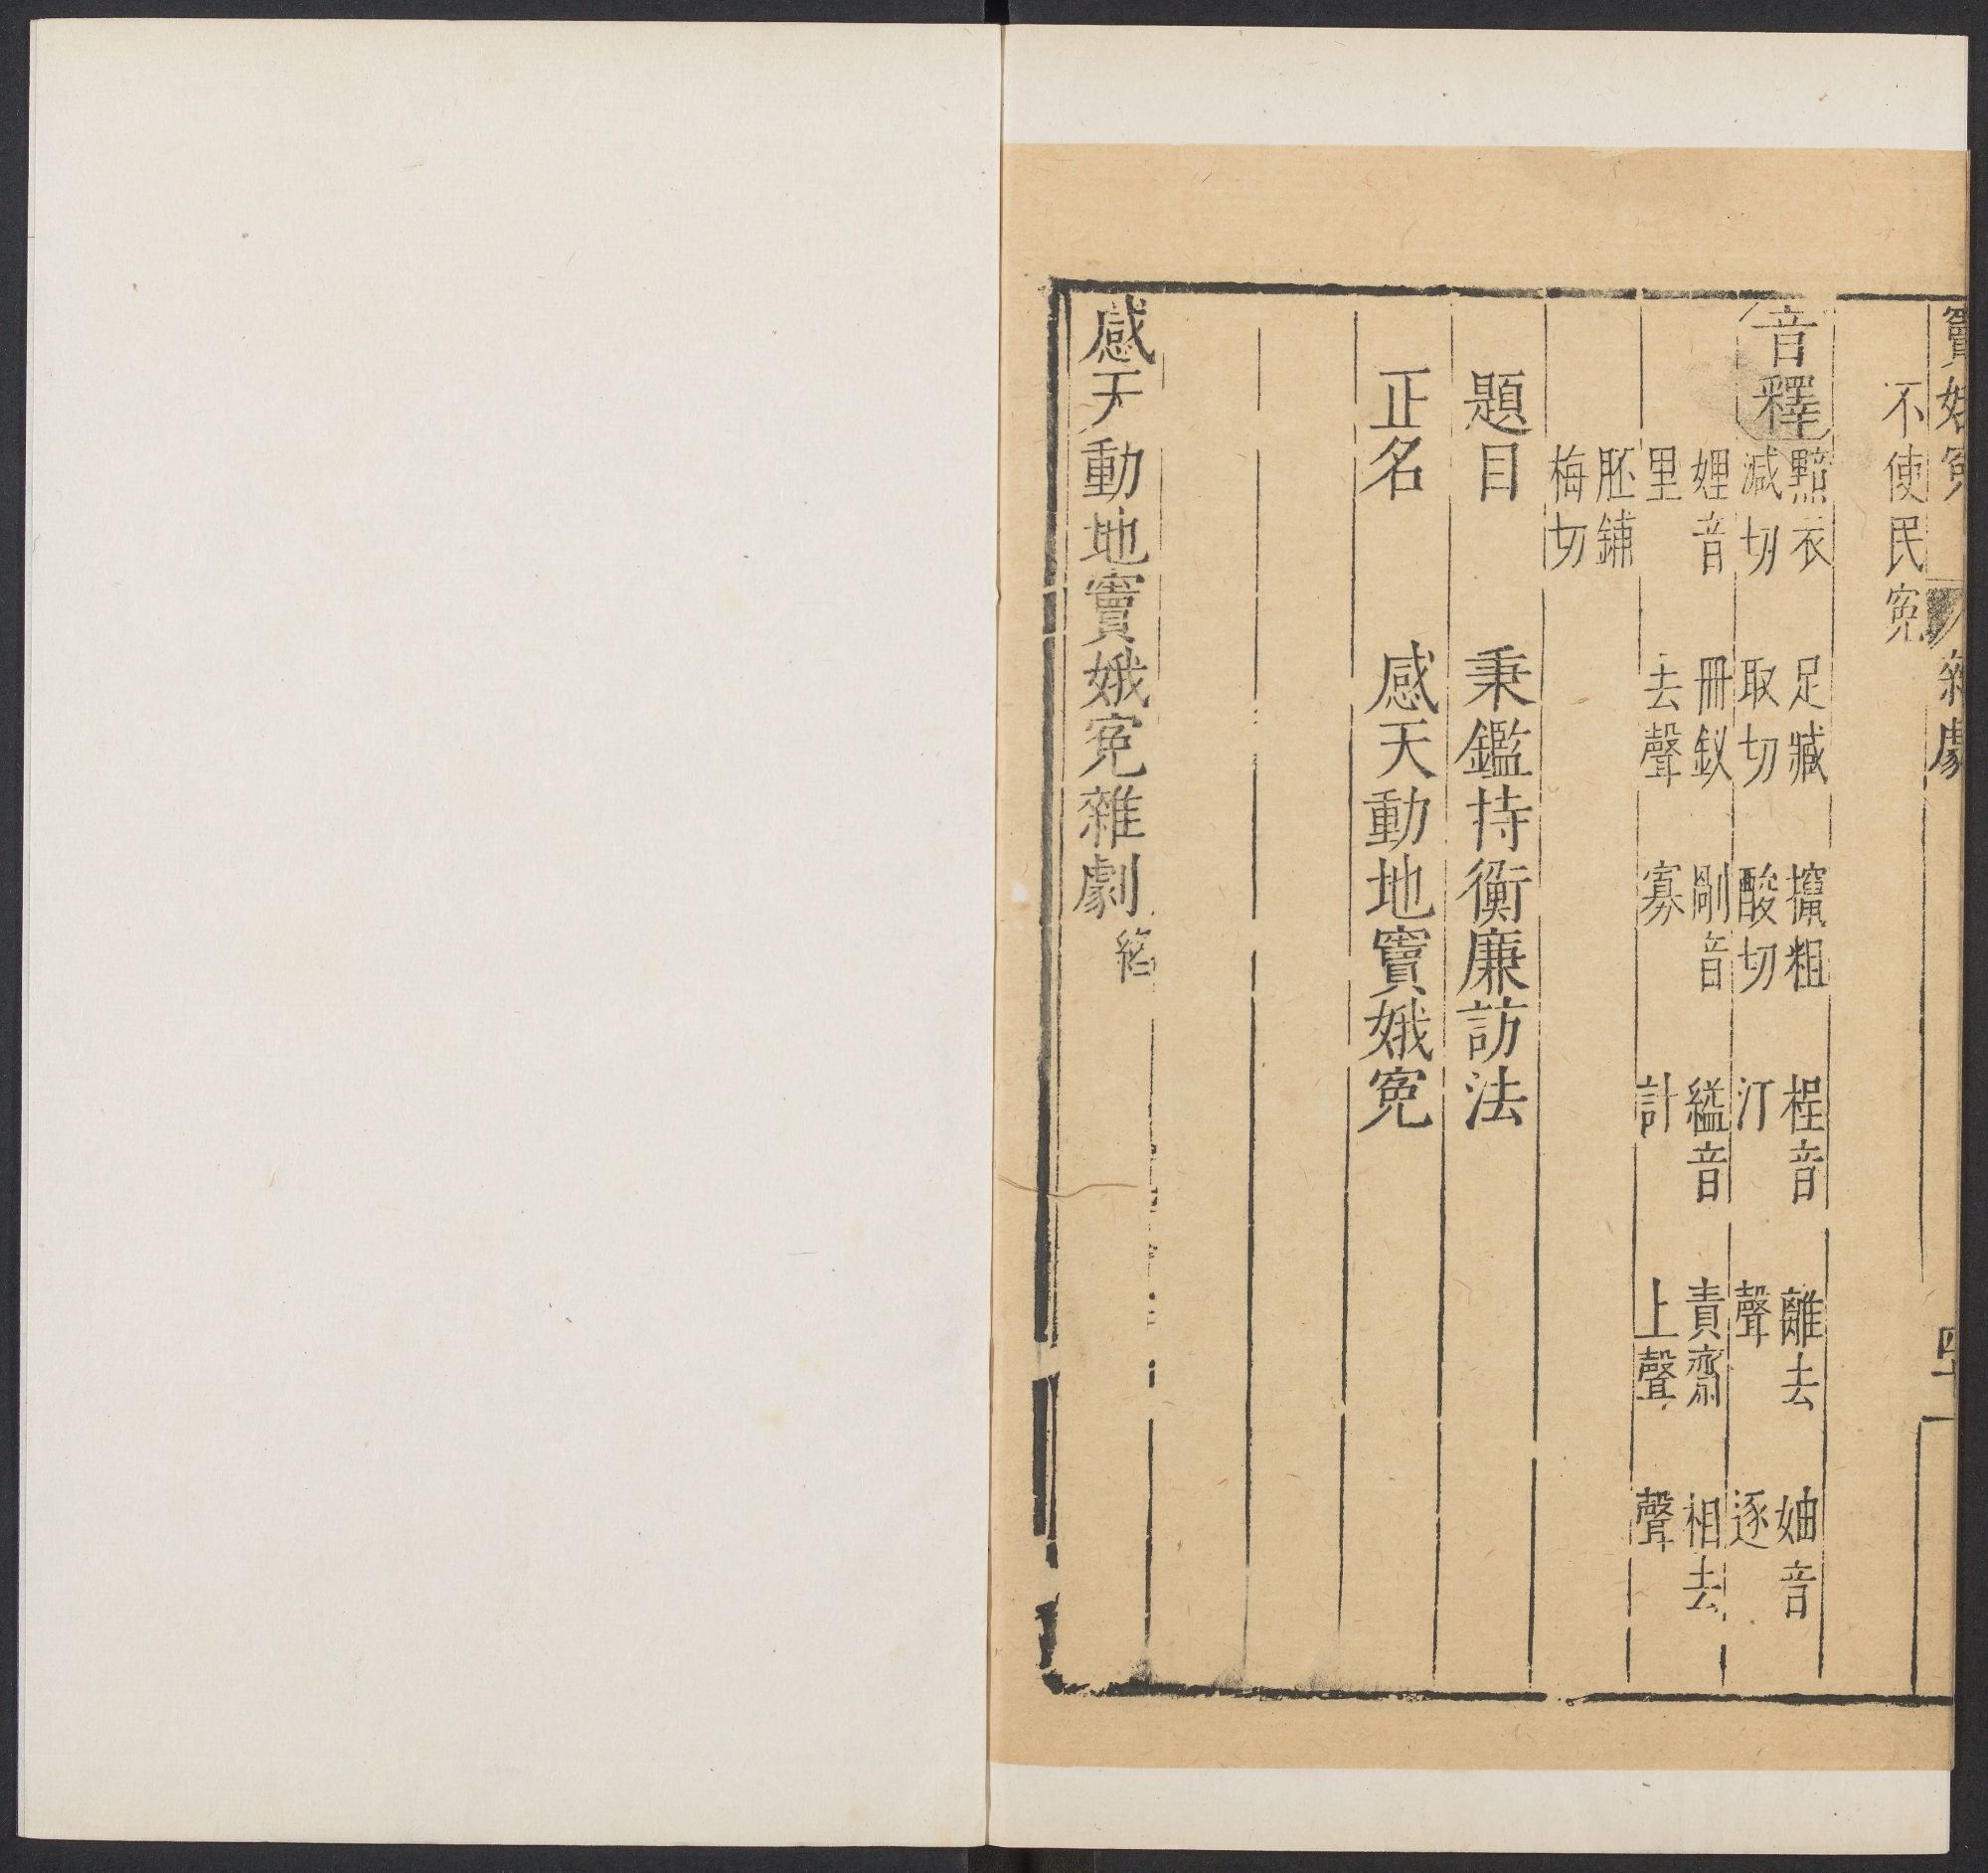 竇娥寃 雜劇
不使民寃
音釋 黯衣減切 足臧取切 攛粗酸切 桯音汀 離去聲 妯音逐
娌音里 冊釵去聲 剮音寡 縊音計 責齋上聲 相去聲
胚鋪梅切
題目 秉鑑持衡廉訪法
正名 感天動地竇娥寃
感天動地竇娥寃雜劇終